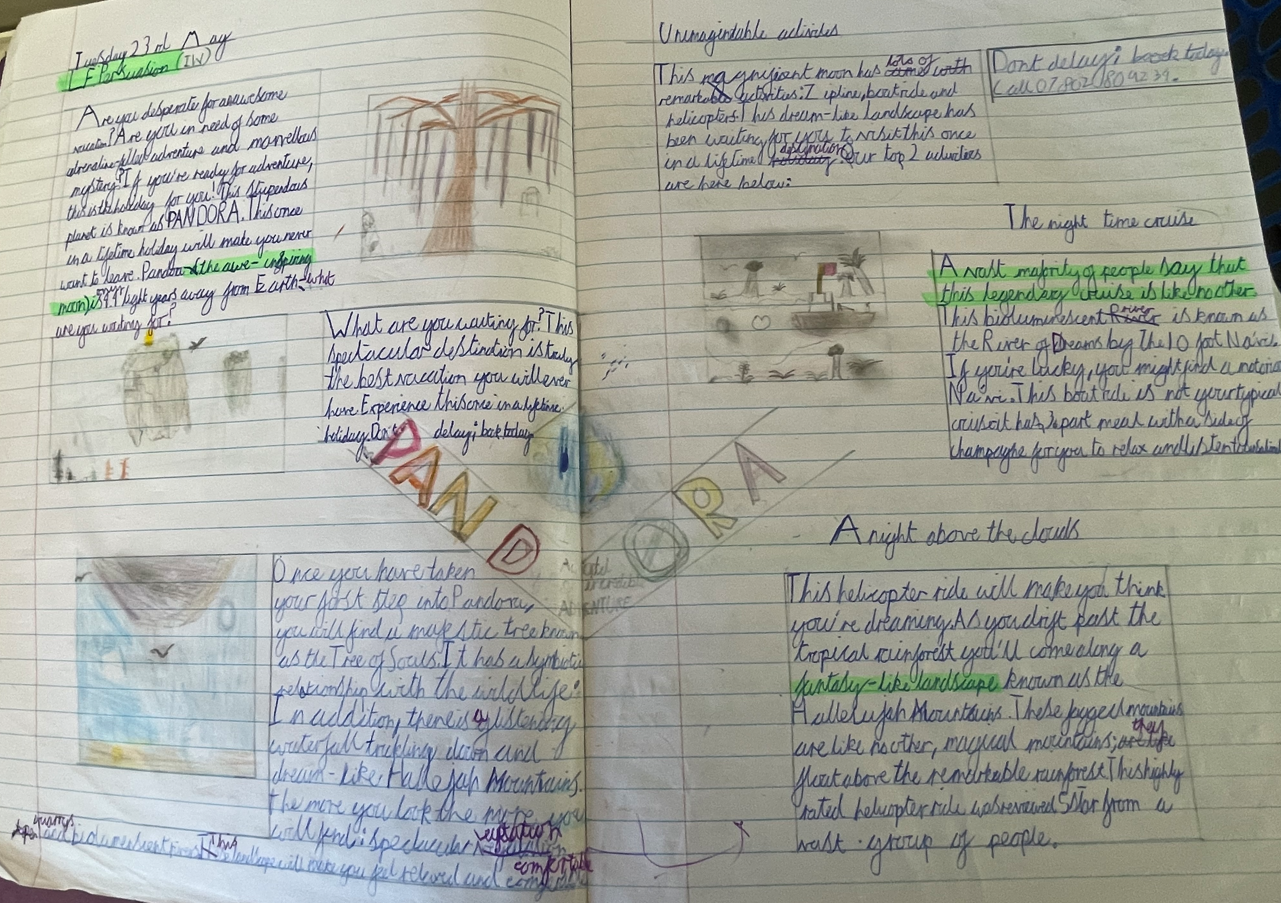 Tuesday 23rd May
LF Persuasion (IW)
Are you desperate for an awesome
vacation? Are you in need of some
adrenaline-filled adventure and marvellous
mystery? If you're ready for adventure,
this is the holiday for you! This stupendous
planet is known as PANDORA. This once
in a lifetime holiday will make you never
want to leave. Pandora (the awe-inspiring
moon) is 4.4 light years away from Earth-what
are you waiting for?
What are you waiting for? This
spectacular distinction is truly
the best vacation you will ever
have. Experience this once in a lifetime
holiday. Don't delay; book today
PANDORA
ADVENTURE
Once you have taken
your first step into Pandora,
you will find a majestic tree known
as the Tree of Souls. It has a symbiotic
relationship with the wildlife.
In addition, there is a glistening
waterfall trickling down and
dream-like Hallejah Mountains.
The more you look the more you
will find: specdular vegetation
and bioluminescent This
landscape will make you feel relaxed and comfortable
Unimagindable activites
This magnificent moon has lots of
remarkable activities: Zipline, boat ride and
helicopters! This dream-like landscape has
been waiting for you to visit this once
in a lifetime destination. Our top 2 activities
are here below:
Dont delay; book today
Call 07802 809239.
The night time cruise
A vast majority of people say that
this legendary cruise is like no other
This bioluminescent River is known as
the River of Dreams by the 10 foot Na'vi.
If you're lucky, you might find a
Na'vi. This boat ride is not your typical
cruise it has 3 part meal with a side of
champagne for you to relax and listen to
A night above the clouds
This helicopter ride will make you think
you're dreaming. As you drift past the
tropical rainforest you'll come along a
fantasy-like landscape known as the
Hallelujah Mountains. These jagged mountains
are like no other, magical mountains; they
float above the remarkable rainforest. This highly
rated helicopter ride was reviewed 5 star from a
vast group of people.